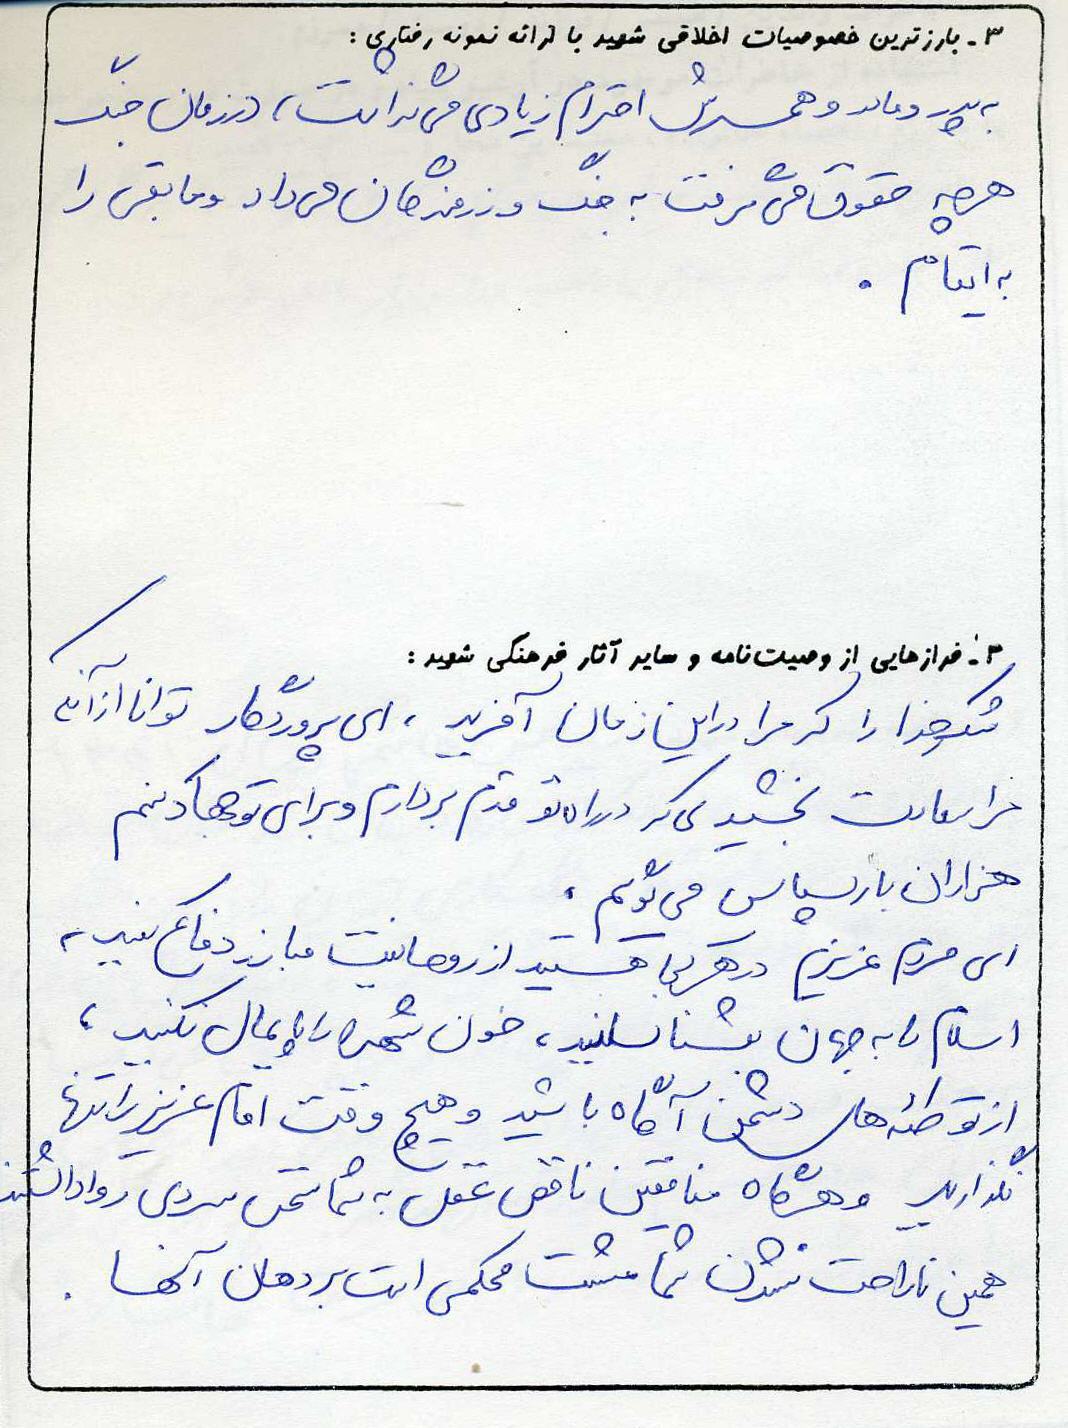 ۳ـ بارزترین خصوصیات اخلاقی شهید با ارائه نمونه رفتاری :
به پدر و مادر و همسرش احترام زیادی می گذاشت ، در زمان جنگ
هرچه حقوق می گرفت به جنگ و رزمندگان می داد و مابقی را
به ایتام .
۳ـ فرازهایی از وصیت نامه و سایر آثار فرهنگی شهید :
شکر خدا را که مرا در این زمان آفرید ، ای پروردگار توانا از آنکه
مرا سعادت بخشیدی که در راه تو قدم بردارم و برای تو جهاد کنم
هزاران بار سپاس می گویم .
ای مردم عزیزم در هر کجا هستید از روحانیت مبارز دفاع کنید ،
اسلام را به جهان بشناسانید ، خون شهدا را پایمال نکنید ،
از توطئه های دشمن آگاه باشید و هیچ وقت امام عزیز را تنها
نگذارید و هرگاه منافقین ناقص عقل به شما تهمتی روا داشتند
همین ناراحت نشدن شما مشت محکمی است بر دهان آنها .